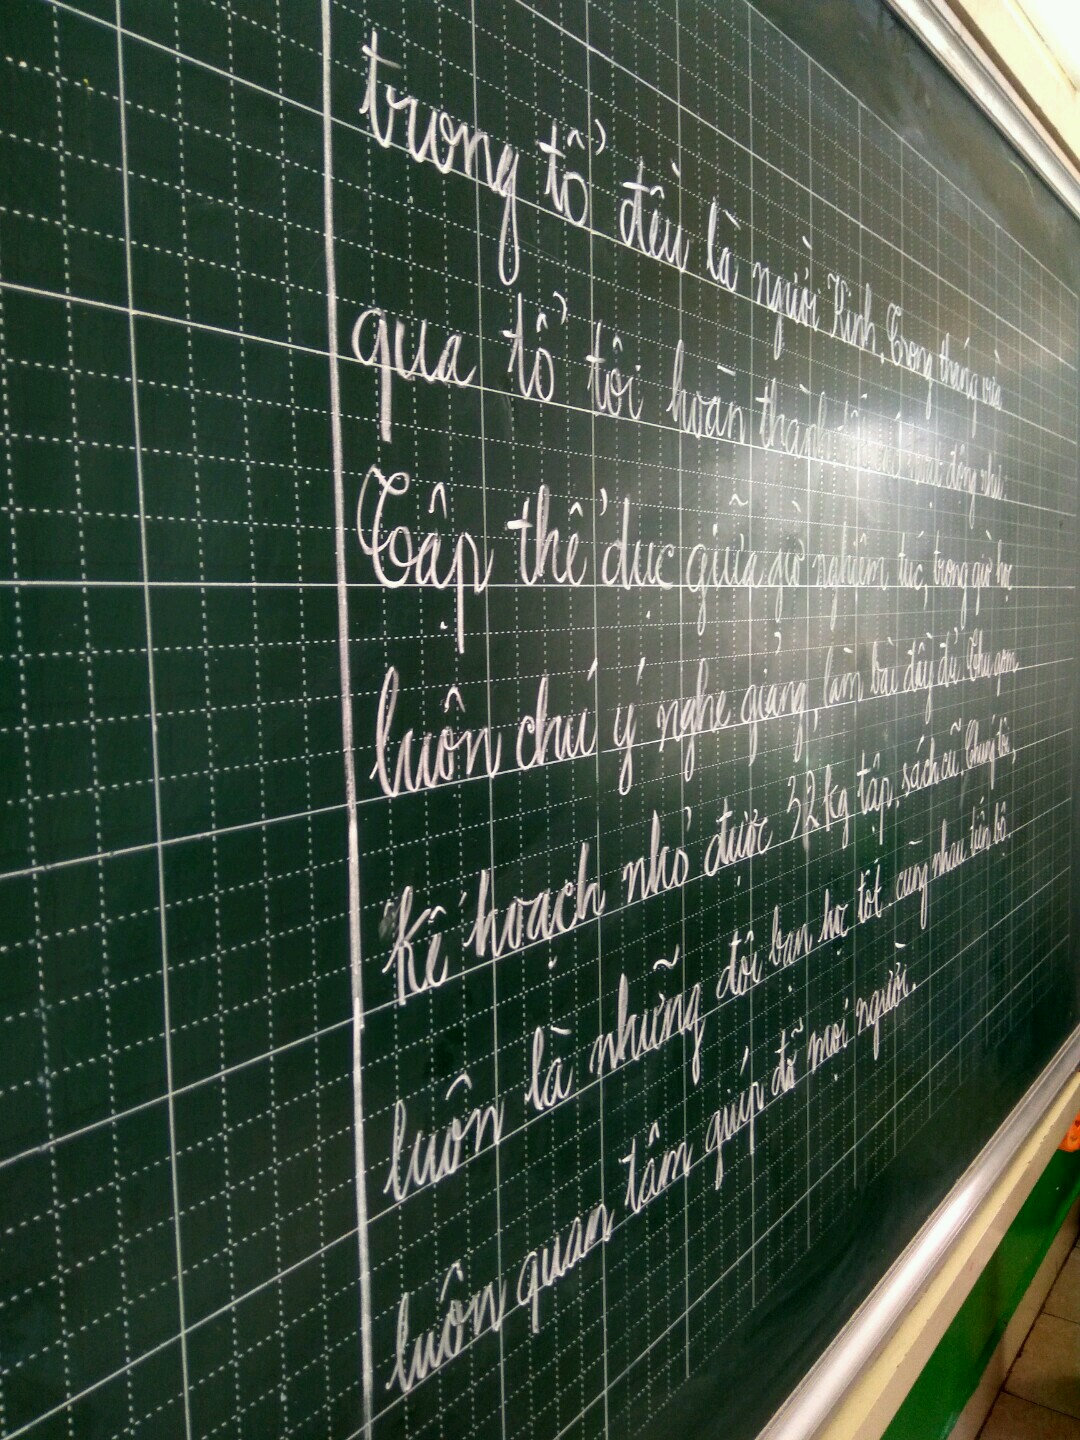 trong tổ đều là người Kinh. Trong tháng vừa
qua tổ tôi hoàn thành hoạt động như:
Tập thể dục giữa giờ nghiêm túc, trong giờ học
luôn chú ý nghe giảng, làm bài đầy đủ. Thu gom
Kế hoạch nhỏ được 32kg tập, sách cũ. Chúng tôi,
luôn là những đôi bạn học tốt cùng nhau tiến bộ.
luôn quan tâm giúp đỡ mọi người.